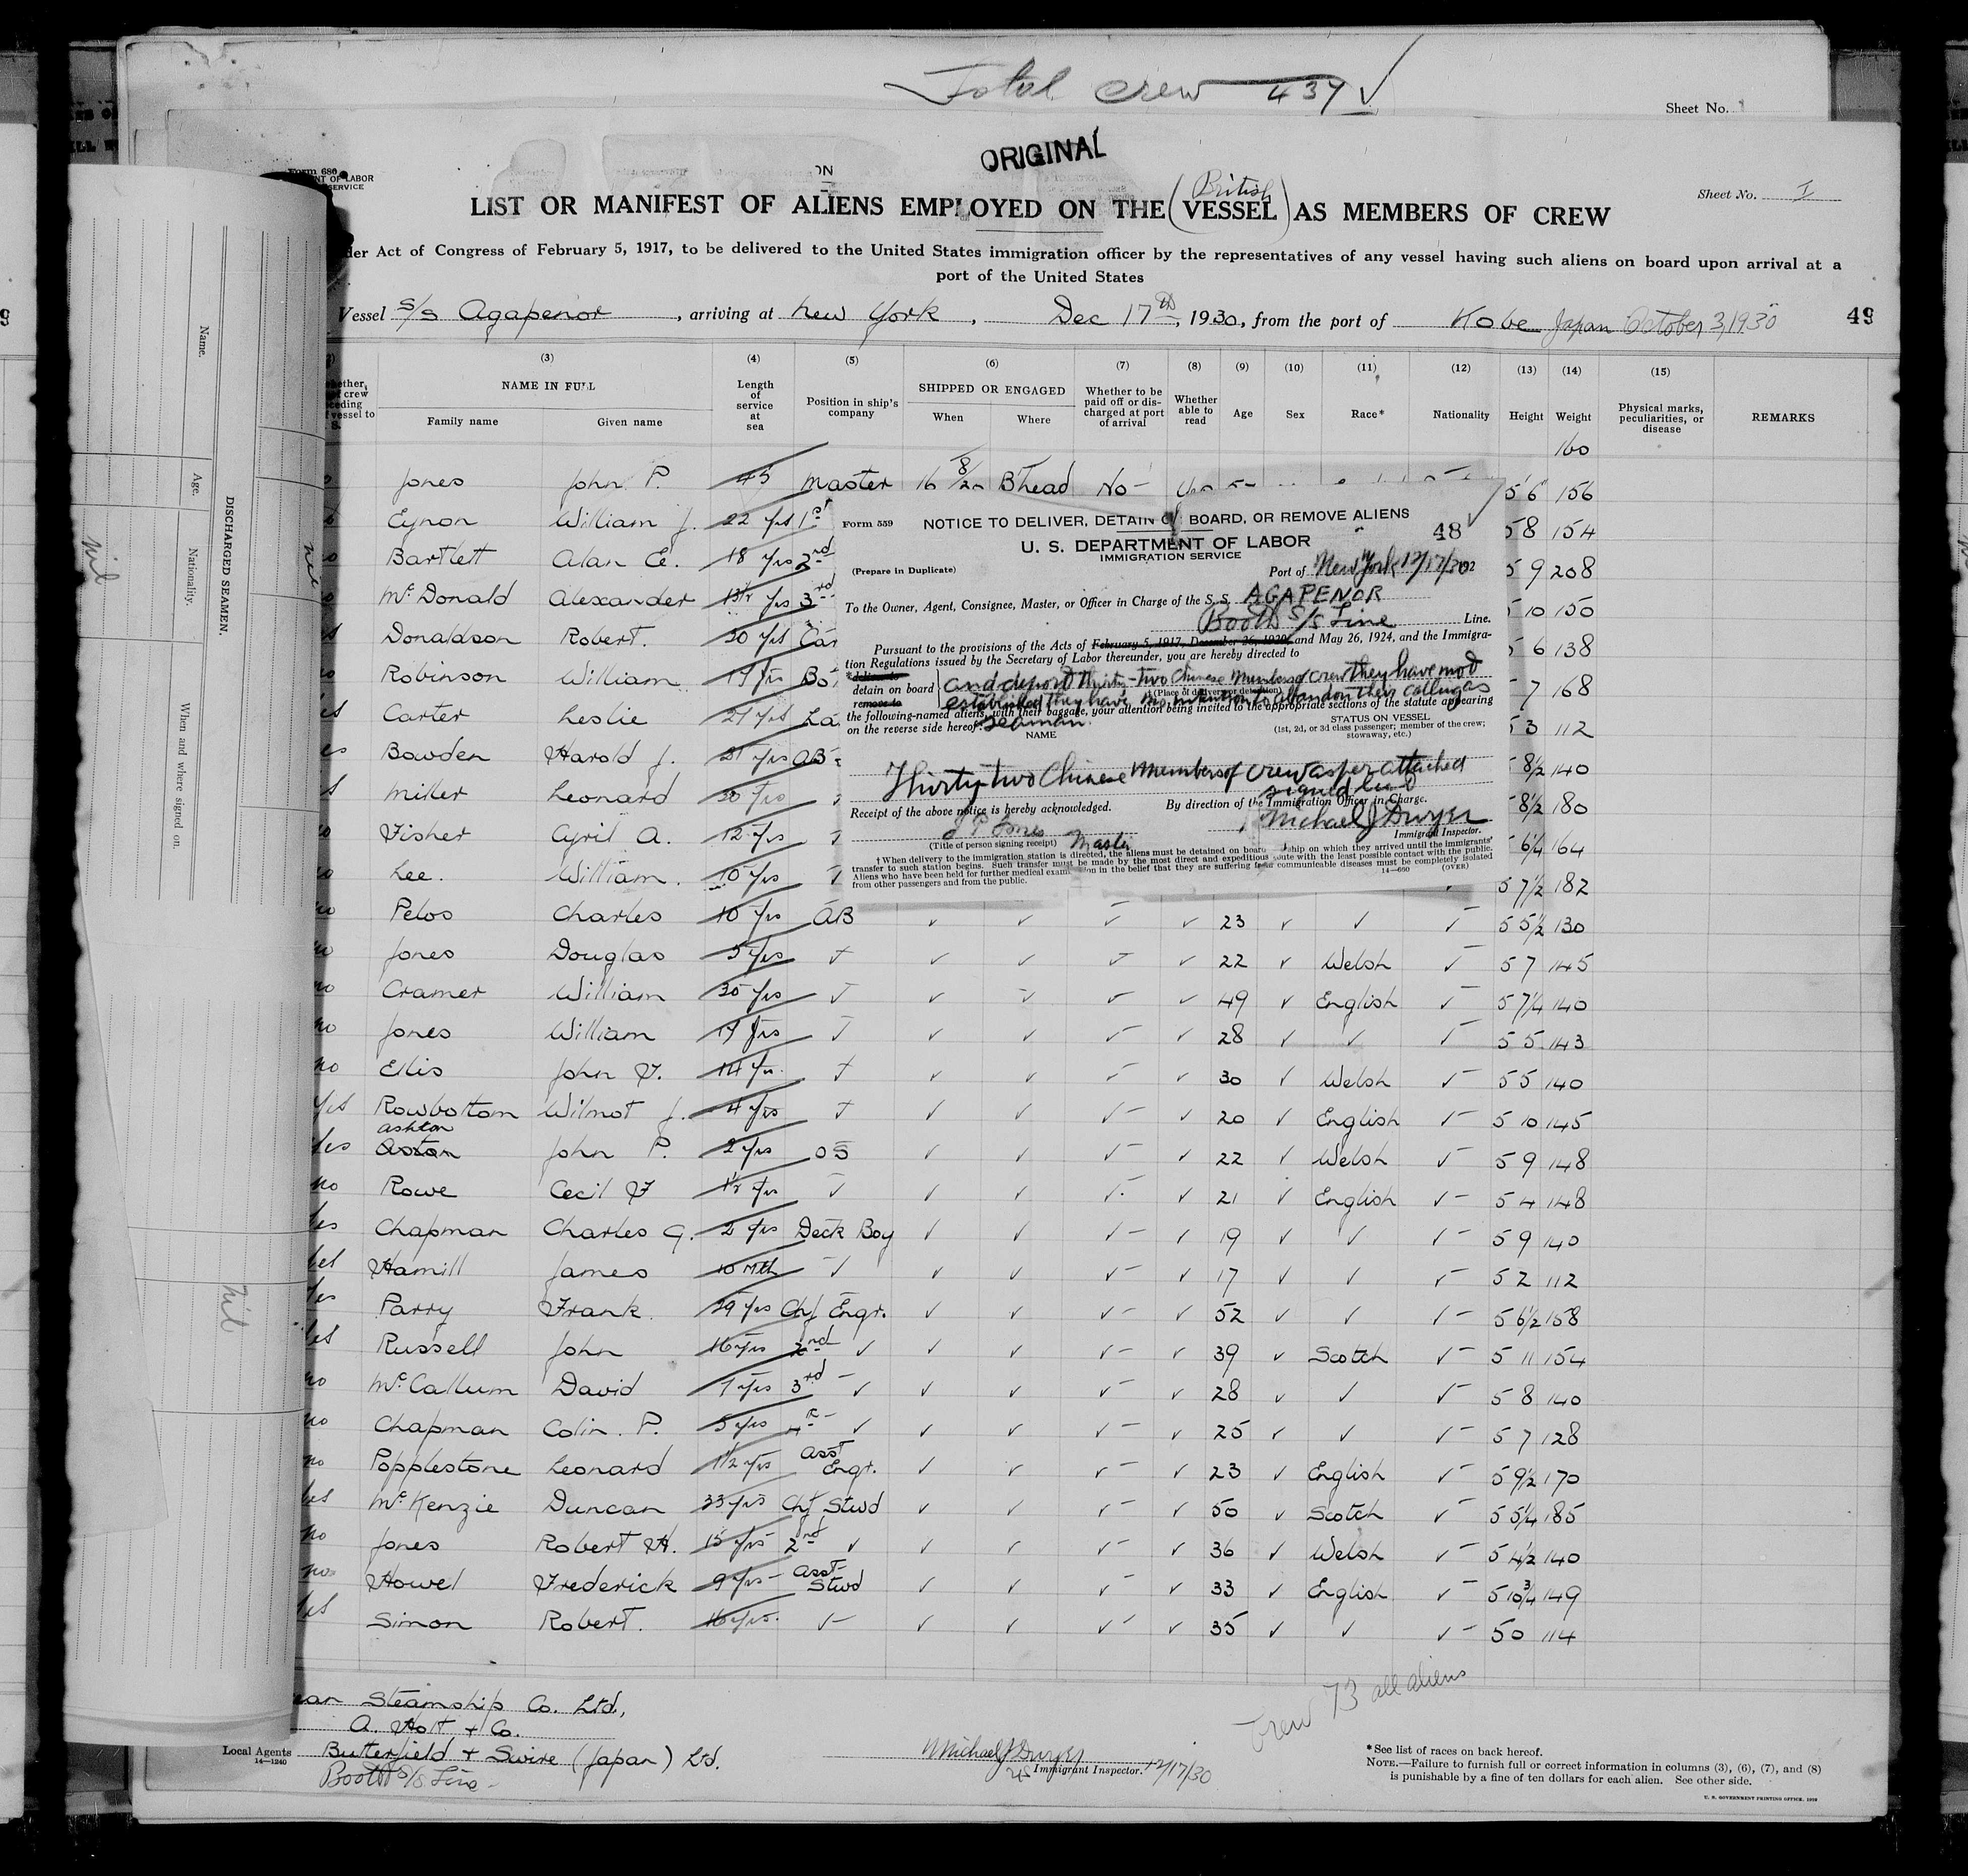 Total crew 437 ✓
Sheet No.
ORIGINAL
Form 680
ENT OF LABOR
SERVICE
ON
Sheet No. I
British
LIST OR MANIFEST OF ALIENS EMPLOYED ON THE (VESSEL) AS MEMBERS OF CREW
der Act of Congress of February 5, 1917, to be delivered to the United States immigration officer by the representatives of any vessel having such aliens on board upon arrival at a
port of the United States
Vessel S/S Agapenor, arriving at New York, Dec 17th, 1930, from the port of Kobe Japan October 3, 1930
49
(3) (4) (5) (6) (7) (8) (9) (10) (11) (12) (13) (14) (15)
NAME IN FULL
Family name Given name
Length of service at sea
Position in ship's company
SHIPPED OR ENGAGED
When Where
Whether to be paid off or discharged at port of arrival
Whether able to read
Age Sex Race* Nationality Height Weight
Physical marks, peculiarities, or disease
REMARKS
160
Jones John P. 45 Master 16 8/30 B'head No - 5 6 156
Eynon William J. 22 yrs 1st 5 8 154
Bartlett Alan E. 18 yrs 2nd 5 9 208
McDonald Alexander 13½ yrs 3rd 5 10 150
Donaldson Robert. 30 yrs Car 5 6 138
Robinson William 19 yrs Bo 5 7 168
Carter Leslie 21 yrs La 5 3 112
Bowden Harold J. 31 yrs AB 8½ 140
Miller Leonard 30 yrs 8½ 180
Fisher Cyril A. 12 yrs 6¼ 164
Lee. William. 10 yrs 5 7½ 182
Form 559
NOTICE TO DELIVER, DETAIN ON BOARD, OR REMOVE ALIENS
48 ✓
U. S. DEPARTMENT OF LABOR
IMMIGRATION SERVICE
(Prepare in Duplicate)
Port of New York 12/17/30 192
To the Owner, Agent, Consignee, Master, or Officer in Charge of the S. S. AGAPENOR
Booth S/S Line Line.
Pursuant to the provisions of the Acts of February 5, 1917, December 26, 1920, and May 26, 1924, and the Immigra-
tion Regulations issued by the Secretary of Labor thereunder, you are hereby directed to
*deliver to
detain on board
remove to
and deport Thirty-two Chinese Members of crew they have not
(Place of delivery or detention)
established they have no intention to abandon their calling as
the following-named aliens, with their baggage, your attention being invited to the appropriate sections of the statute appearing
on the reverse side hereof: seaman.
NAME
STATUS ON VESSEL
(1st, 2d, or 3d class passenger; member of the crew; stowaway, etc.)
Thirty-two Chinese Members of crew as per attached
signed list
Receipt of the above notice is hereby acknowledged.
By direction of the Immigration Officer in Charge.
J P Jones
Michael J Dwyer
Immigrant Inspector.
(Title of person signing receipt) Master
† When delivery to the immigration station is directed, the aliens must be detained on board ship on which they arrived until the immigrants'
transfer to such station begins. Such transfer must be made by the most direct and expeditious route with the least possible contact with the public.
Aliens who have been held for further medical examination in the belief that they are suffering from communicable diseases must be completely isolated
from other passengers and from the public.
14—690 (OVER)
Pelos Charles 10 yrs AB ✓ ✓ ✓ ✓ 23 ✓ ✓ ✓ 5 5½ 130
no Jones Douglas 5 yrs ✓ ✓ ✓ ✓ ✓ 22 ✓ Welsh ✓ 5 7 145
no Cramer William 30 yrs ✓ ✓ ✓ ✓ ✓ 49 ✓ English ✓ 5 7¼ 140
no Jones William 19 yrs ✓ ✓ ✓ ✓ ✓ 28 ✓ ✓ ✓ 5 5 143
no Ellis John F. 14 yrs ✓ ✓ ✓ ✓ ✓ 30 ✓ Welsh ✓ 5 5 140
yes Rowbottom Wilmot J. 4 yrs ✓ ✓ ✓ ✓ ✓ 20 ✓ English ✓ 5 10 145
ashton
yes Aston John P. 2 yrs OS ✓ ✓ ✓ ✓ 22 ✓ Welsh ✓ 5 9 148
no Rowe Cecil F 1½ yrs ✓ ✓ ✓ ✓ ✓ 21 ✓ English ✓ 5 4 148
yes Chapman Charles G. 2 yrs Deck Boy ✓ ✓ ✓ ✓ 19 ✓ ✓ ✓ 5 9 140
yes Hamill James 10 Mth ✓ ✓ ✓ ✓ ✓ 17 ✓ ✓ ✓ 5 2 112
yes Parry Frank 29 yrs Chf Engr. ✓ ✓ ✓ ✓ 52 ✓ ✓ ✓ 5 6½ 158
yes Russell John 16 yrs 2nd ✓ ✓ ✓ ✓ ✓ 39 ✓ Scotch ✓ 5 11 154
no McCallum David 7 yrs 3rd ✓ ✓ ✓ ✓ ✓ 28 ✓ ✓ ✓ 5 8 140
no Chapman Colin. P. 5 yrs 4th ✓ ✓ ✓ ✓ ✓ 25 ✓ ✓ ✓ 5 7 128
no Popplestone Leonard 1½ yrs Asst Engr. ✓ ✓ ✓ ✓ 23 ✓ English ✓ 5 9½ 170
yes McKenzie Duncan 33 yrs Chf Stwd ✓ ✓ ✓ ✓ 50 ✓ Scotch ✓ 5 5¼ 185
no Jones Robert H. 15 yrs 2nd ✓ ✓ ✓ ✓ ✓ 36 ✓ Welsh ✓ 5 4½ 140
no Howel Frederick 9 yrs Asst Stwd ✓ ✓ ✓ ✓ 33 ✓ English ✓ 5 10¾ 149
yes Simon Robert. 16 yrs ✓ ✓ ✓ ✓ ✓ 35 ✓ ✓ ✓ 5 0 114
Crew 73 all aliens
ean Steamship Co. Ltd.,
A. Holt + Co.
Local Agents Butterfield + Swire (Japan) Ltd.
14—1240
Booth S/S Line
Michael J Dwyer
Immigrant Inspector. 12/17/30
*See list of races on back hereof.
NOTE.—Failure to furnish full or correct information in columns (3), (6), (7), and (8)
is punishable by a fine of ten dollars for each alien. See other side.
U. S. GOVERNMENT PRINTING OFFICE
DISCHARGED SEAMEN.
Name. Age. Nationality. When and where signed on.
nil
nil